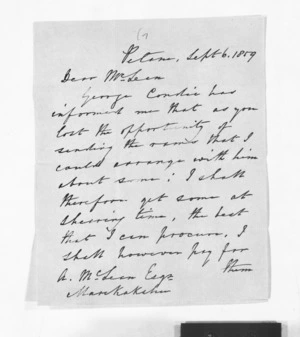 Petane, Sept 6. 1859
Dear McLean
George Condie has
informed me that as you
lost the opportunity of
sending the rams that I
could arrange with him
about some; I shall
therefore get some at
shearing time, the best
that I can procure, I
shall however pay for
them
A. McLean Esqr
Marekakaho